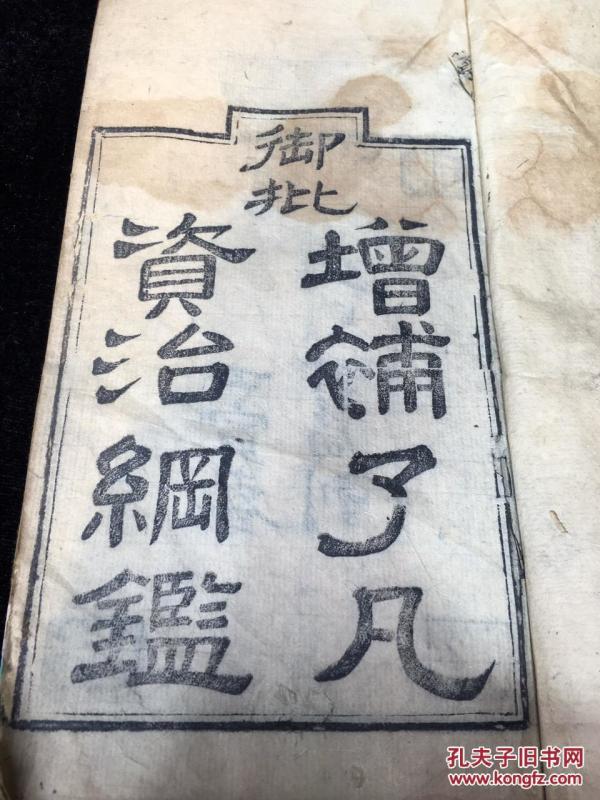 御批
增補了凡
資治綱鑑
孔夫子旧书网
www.kongfz.com